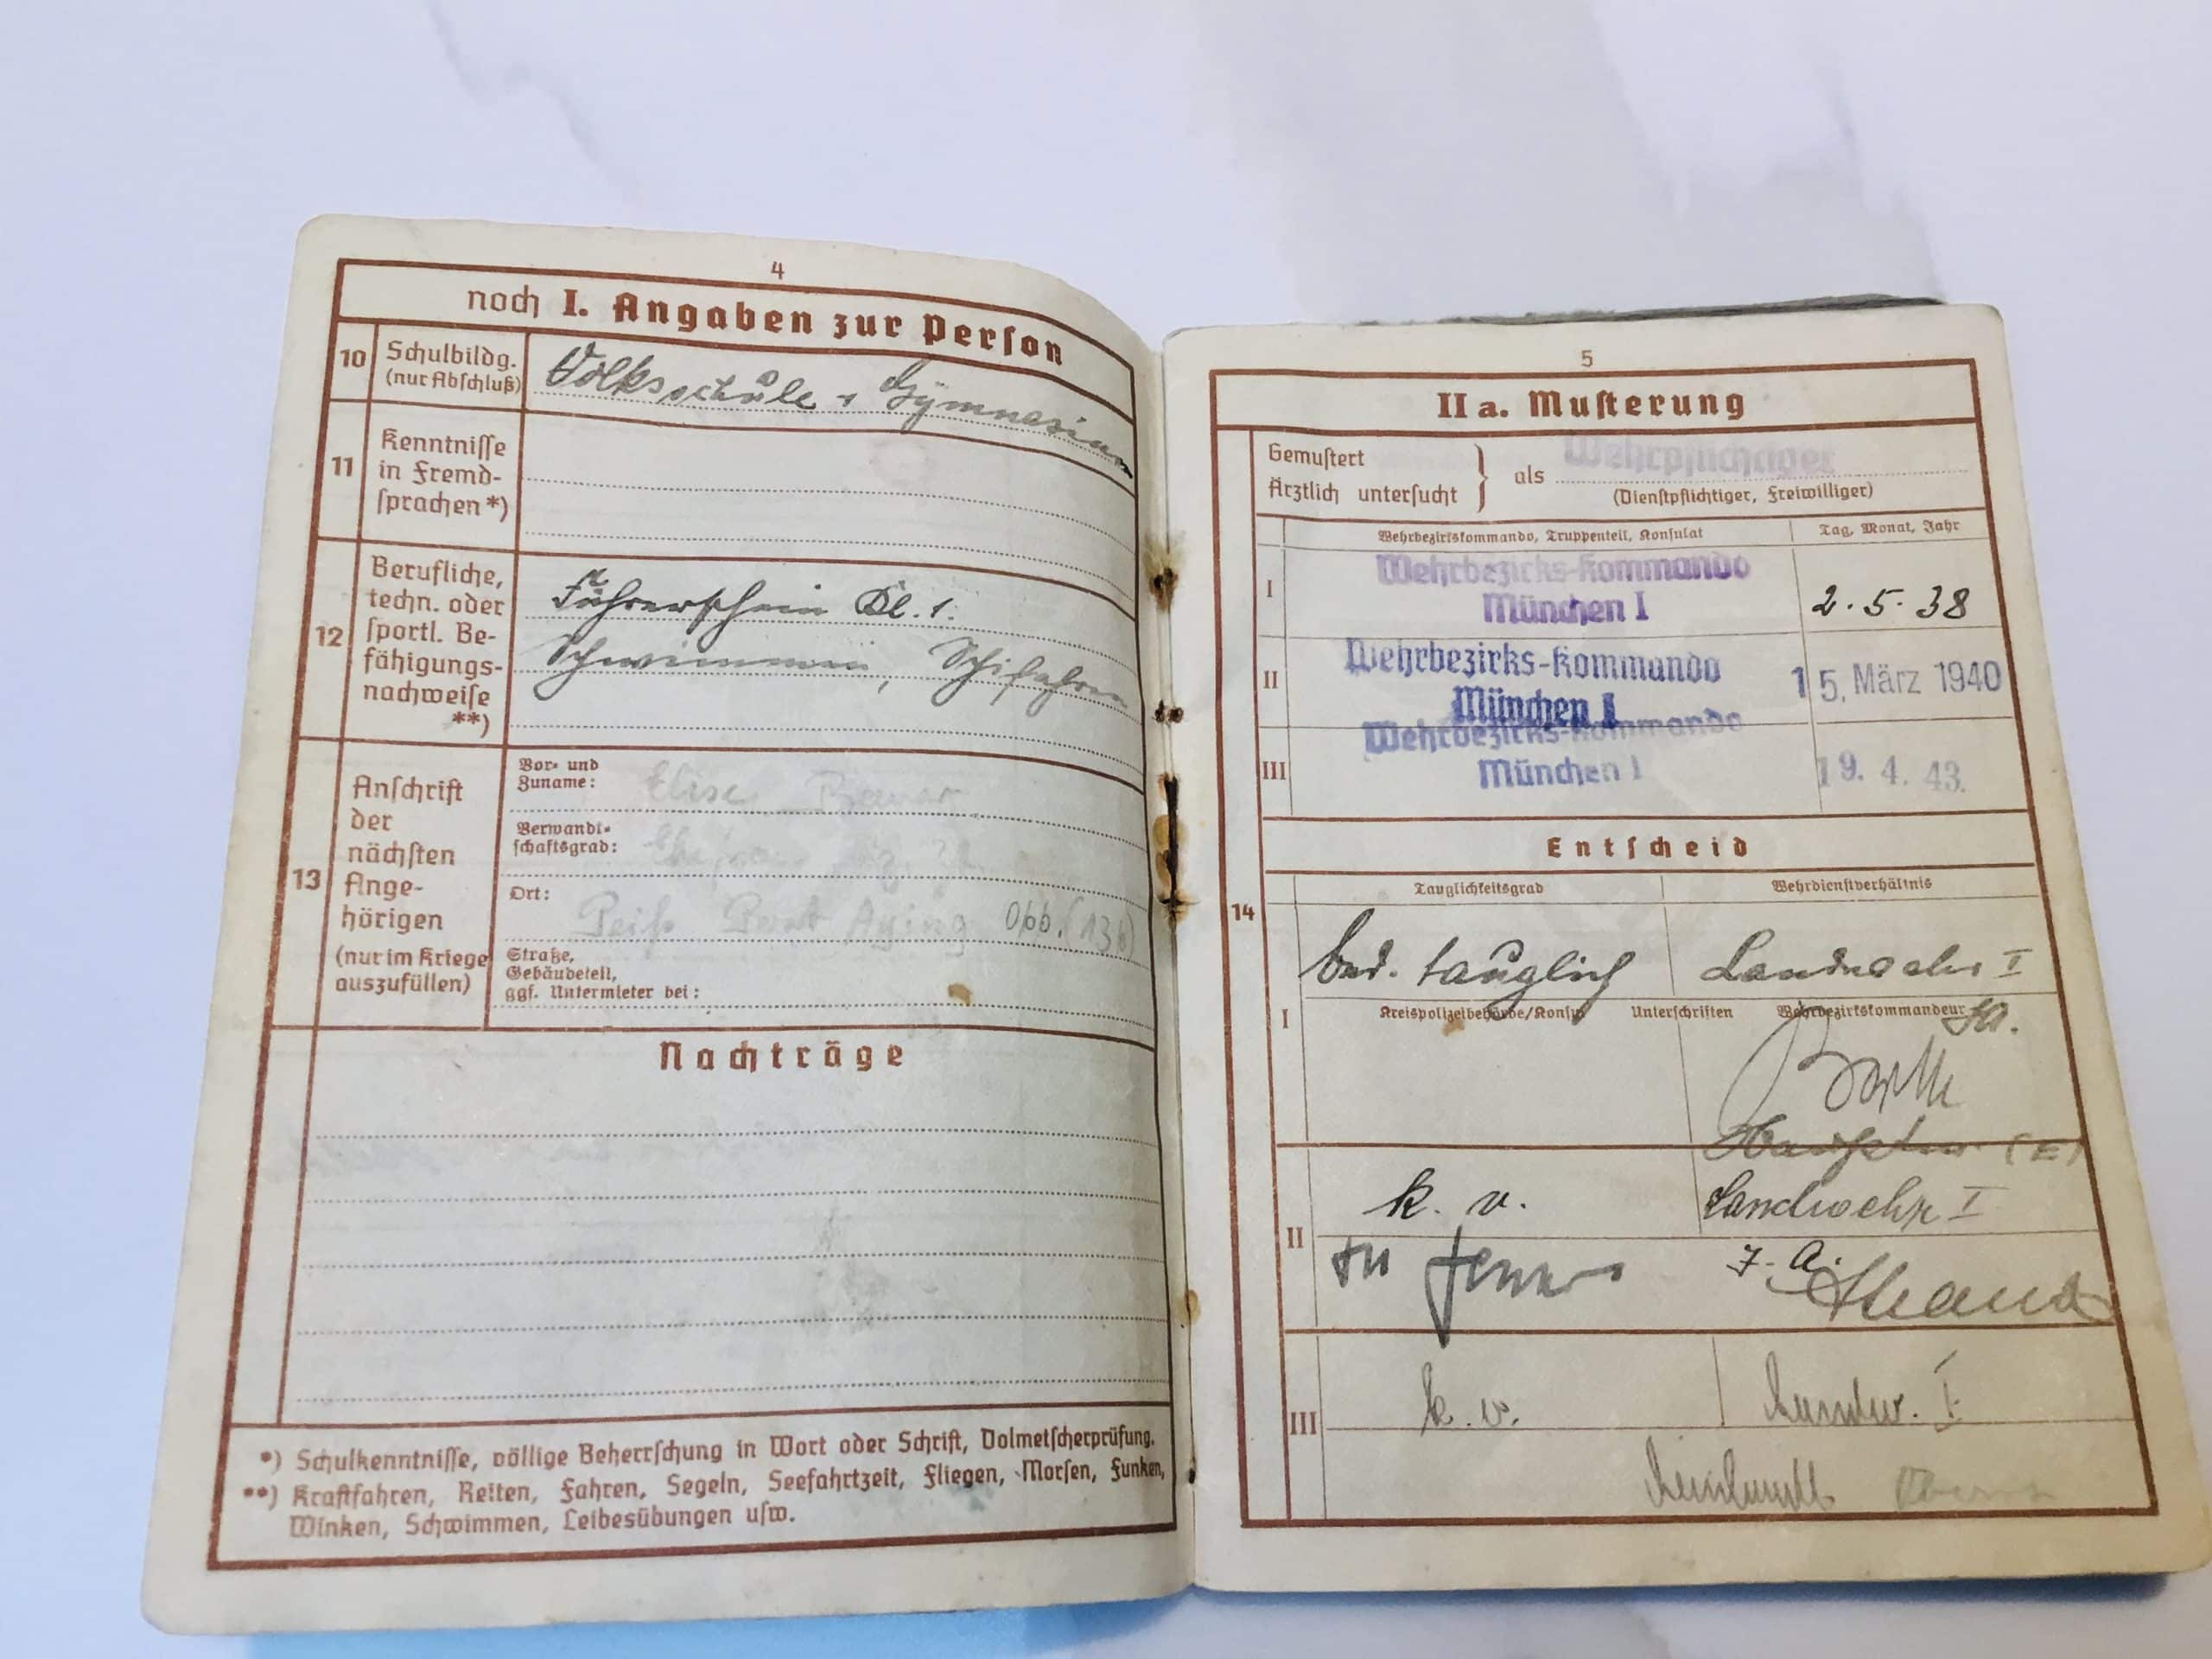 4
noch I. Angaben zur Person
10 Schulbildg. (nur Abschluß)
Volksschule + Gymnasium
11 Kenntnisse in Fremd-
sprachen *)
12 Berufliche,
techn. oder
sportl. Be-
fähigungs-
nachweise
**)
Führerschein Kl. 1.
Schwimmen, Schifahren
13 Anschrift
der
nächsten
Ange-
hörigen
(nur im Kriege
auszufüllen)
Vor- und
Zuname: Elise
Verwandt-
schaftsgrad:
Ort: Peiß Post Aying Obb. (13b)
Straße,
Gebäudeteil,
ggf. Untermieter bei:
Nachträge
*) Schulkenntnisse, völlige Beherrschung in Wort oder Schrift, Dolmetscherprüfung.
**) Kraftfahren, Reiten, Fahren, Segeln, Seefahrtzeit, Fliegen, Morsen, Funken,
Winken, Schwimmen, Leibesübungen usw.
5
II a. Musterung
Gemustert
Ärztlich untersucht } als Wehrpflichtiger
(Dienstpflichtiger, Freiwilliger)
Wehrbezirkskommando, Truppenteil, Konsulat Tag, Monat, Jahr
I Wehrbezirks-Kommando
München I 2. 5. 38
II Wehrbezirks-Kommando
München I 15. März 1940
III Wehrbezirks-Kommando
München I 19. 4. 43.
Entscheid
14
Tauglichkeitsgrad Wehrdienstverhältnis
I bed. tauglich Landwehr I
Kreispolizeibehörde/Konsul Unterschriften Wehrbezirkskommandeur
Hauptm. (E)
II k. v. Landwehr I
III k. v. Landw. I